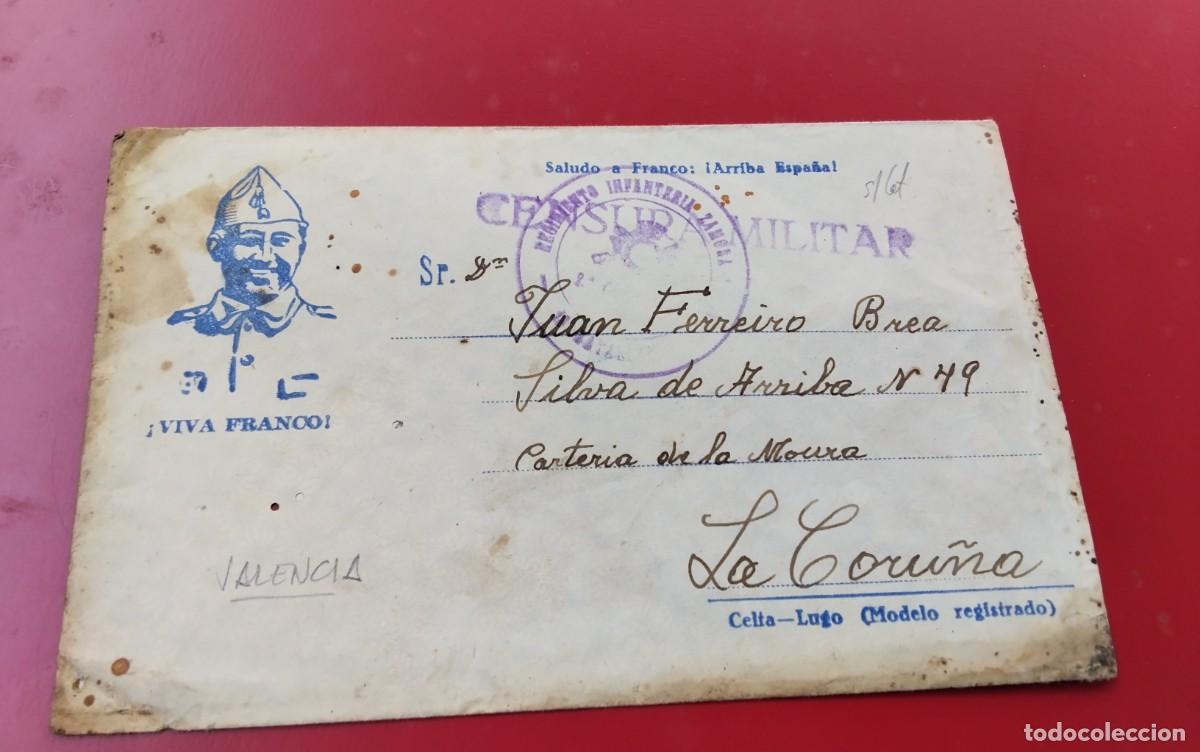 Saludo a Franco: ¡Arriba España!
s/Cat
CENSURA MILITAR
REGIMIENTO INFANTERIA ZAMORA
Sr. Dn
Juan Ferreiro Brea
Silva de Arriba N 49
Carteria de la Moura
La Coruña
Celta—Lugo (Modelo registrado)
¡VIVA FRANCO!
VALENCIA
todocoleccion